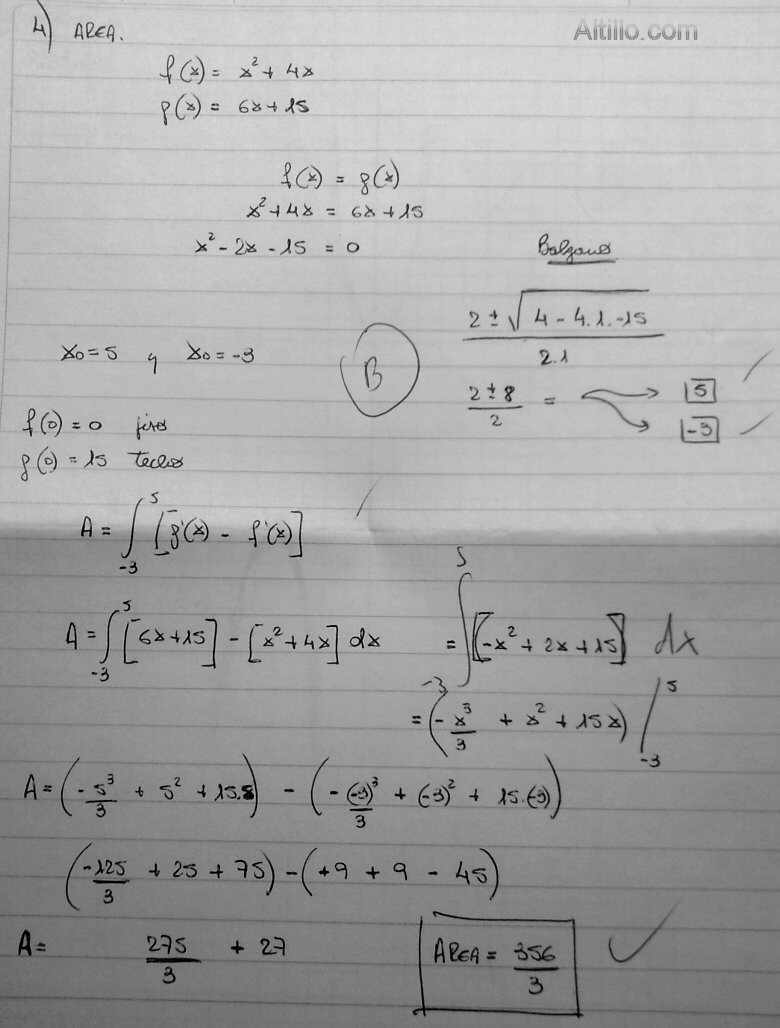 4) AREA.
Altillo.com
f(x) = x² + 4x
g(x) = 6x + 15
f(x) = g(x)
x² + 4x = 6x + 15
x² - 2x - 15 = 0
2 ± √(4 - 4.1.-15) / 2.1
x₀ = 5 y x₀ = -3
B
(2 ± 8) / 2 =
5
-3
f(0) = 0 piso
g(0) = 15 techo
A = ∫₋₃⁵ [g(x) - f(x)]
A = ∫₋₃⁵ [6x + 15] - [x² + 4x] dx = ∫₋₃⁵ [-x² + 2x + 15] dx
= (-x³/3 + x² + 15x) /₋₃⁵
A = (-5³/3 + 5² + 15.5) - (-(-3)³/3 + (-3)² + 15.(-3))
(-125/3 + 25 + 75) - (+9 + 9 - 45)
A = 275/3 + 27
AREA = 356/3